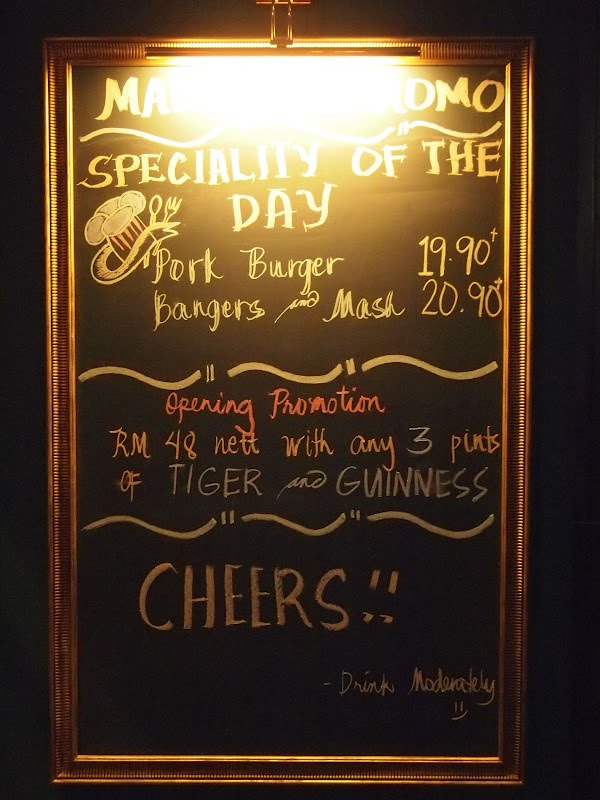 SPECIALITY OF THE
DAY
Pork Burger 19.90+
Bangers and Mash 20.90+
Opening Promotion
RM 48 nett with any 3 pints
OF TIGER and GUINNESS
CHEERS!!
- Drink Moderately